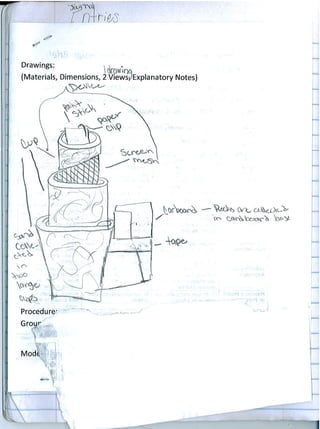 Signal
Entries
Drawings:
1 drawing
(Materials, Dimensions, 2 Views/Explanatory Notes)
Device
paint
stick
paper
clip
Cup
Screen
mesh
Carboard — Rocks are collected
in cardboard box
tape
Sand
Colle-
cted
in
two
large
cups
Procedure:
Grou
Mod